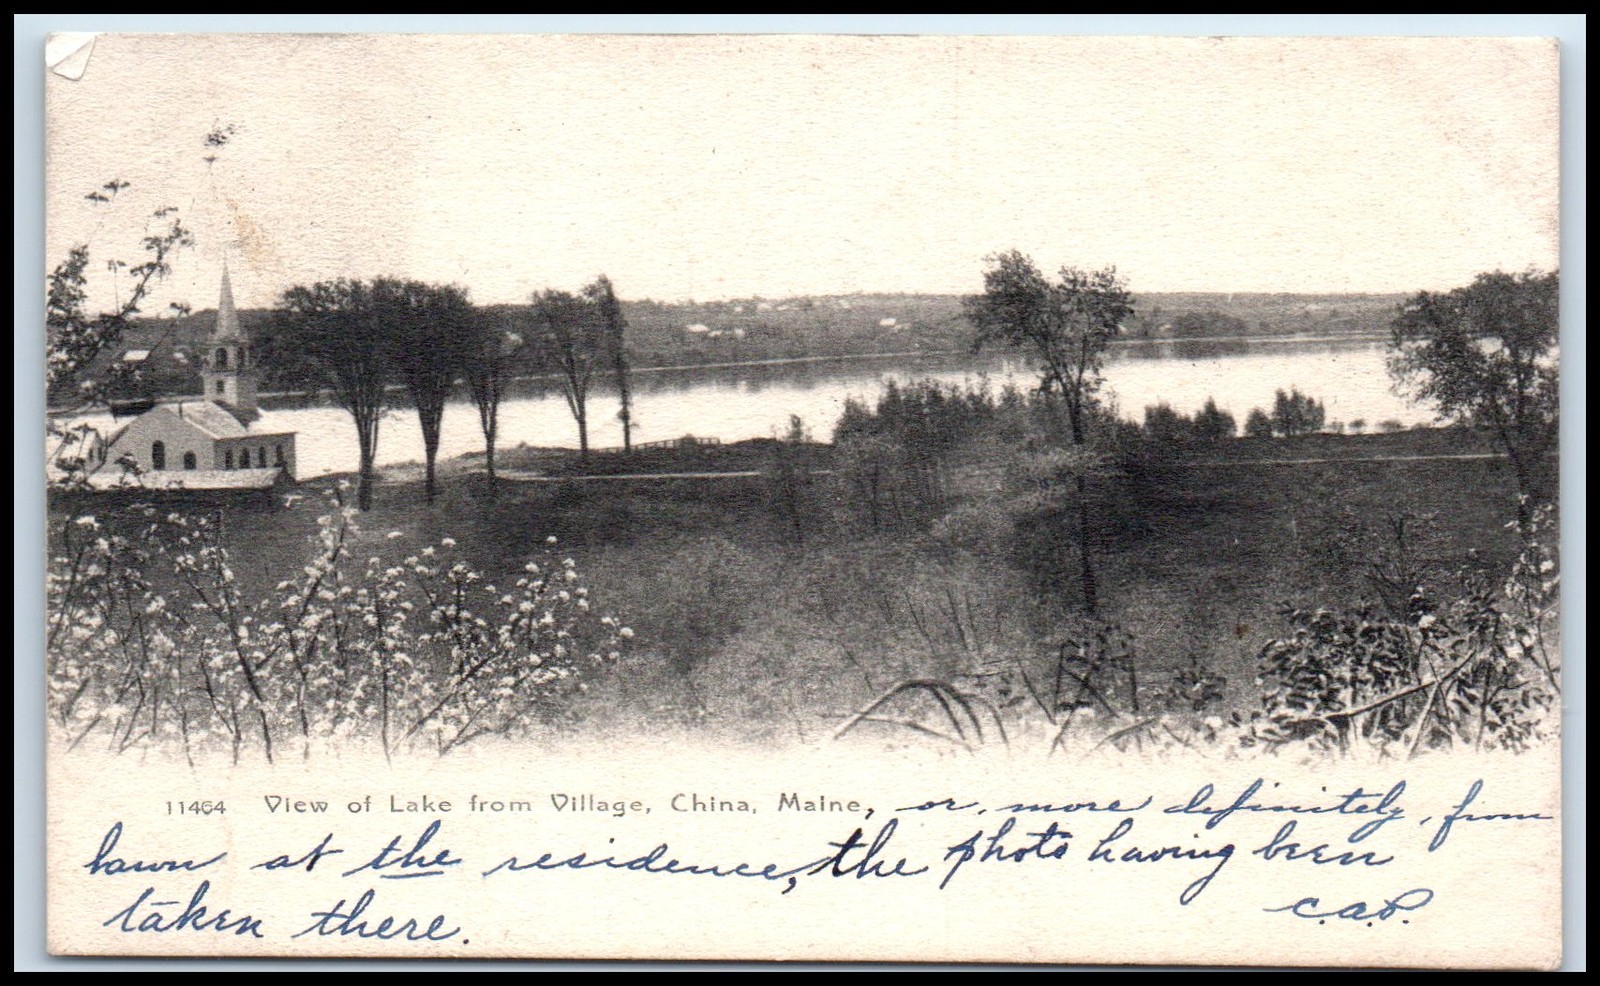 11464 View of Lake from Village, China, Maine, or, more definitely, from
lawn at the residence, the photo having been
taken there. C.A.P.